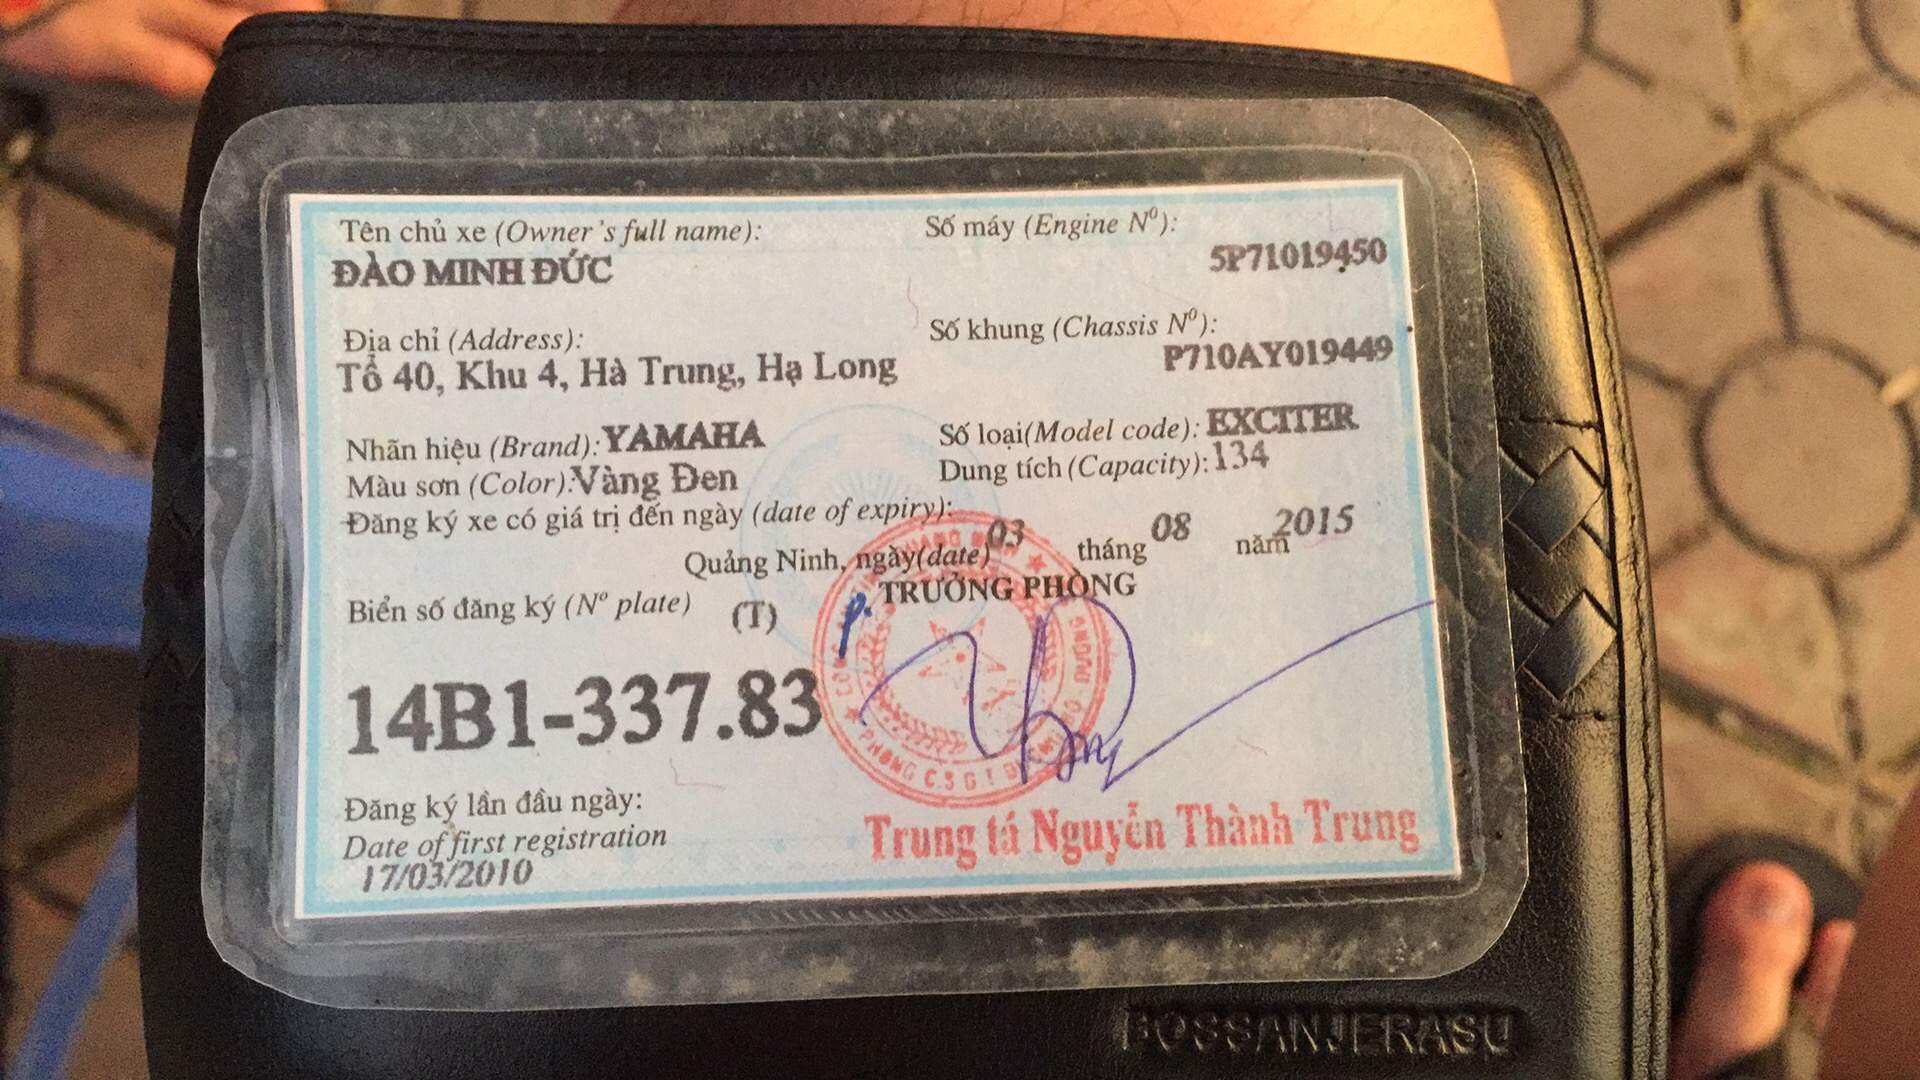 Tên chủ xe (Owner's full name):
ĐÀO MINH ĐỨC
Số máy (Engine Nº):
5P71019450
Địa chỉ (Address):
Tổ 40, Khu 4, Hà Trung, Hạ Long
Số khung (Chassis Nº):
P710AY019449
Nhãn hiệu (Brand): YAMAHA
Số loại(Model code): EXCITER
Màu sơn (Color):Vàng Đen
Dung tích (Capacity):134
Đăng ký xe có giá trị đến ngày (date of expiry):
Quảng Ninh, ngày(date) 03 tháng 08 năm 2015
P. TRƯỞNG PHÒNG
Biển số đăng ký (Nº plate) (T)
14B1-337.83
Đăng ký lần đầu ngày:
Date of first registration
17/03/2010
Trung tá Nguyễn Thành Trung
BOSSANJERASU